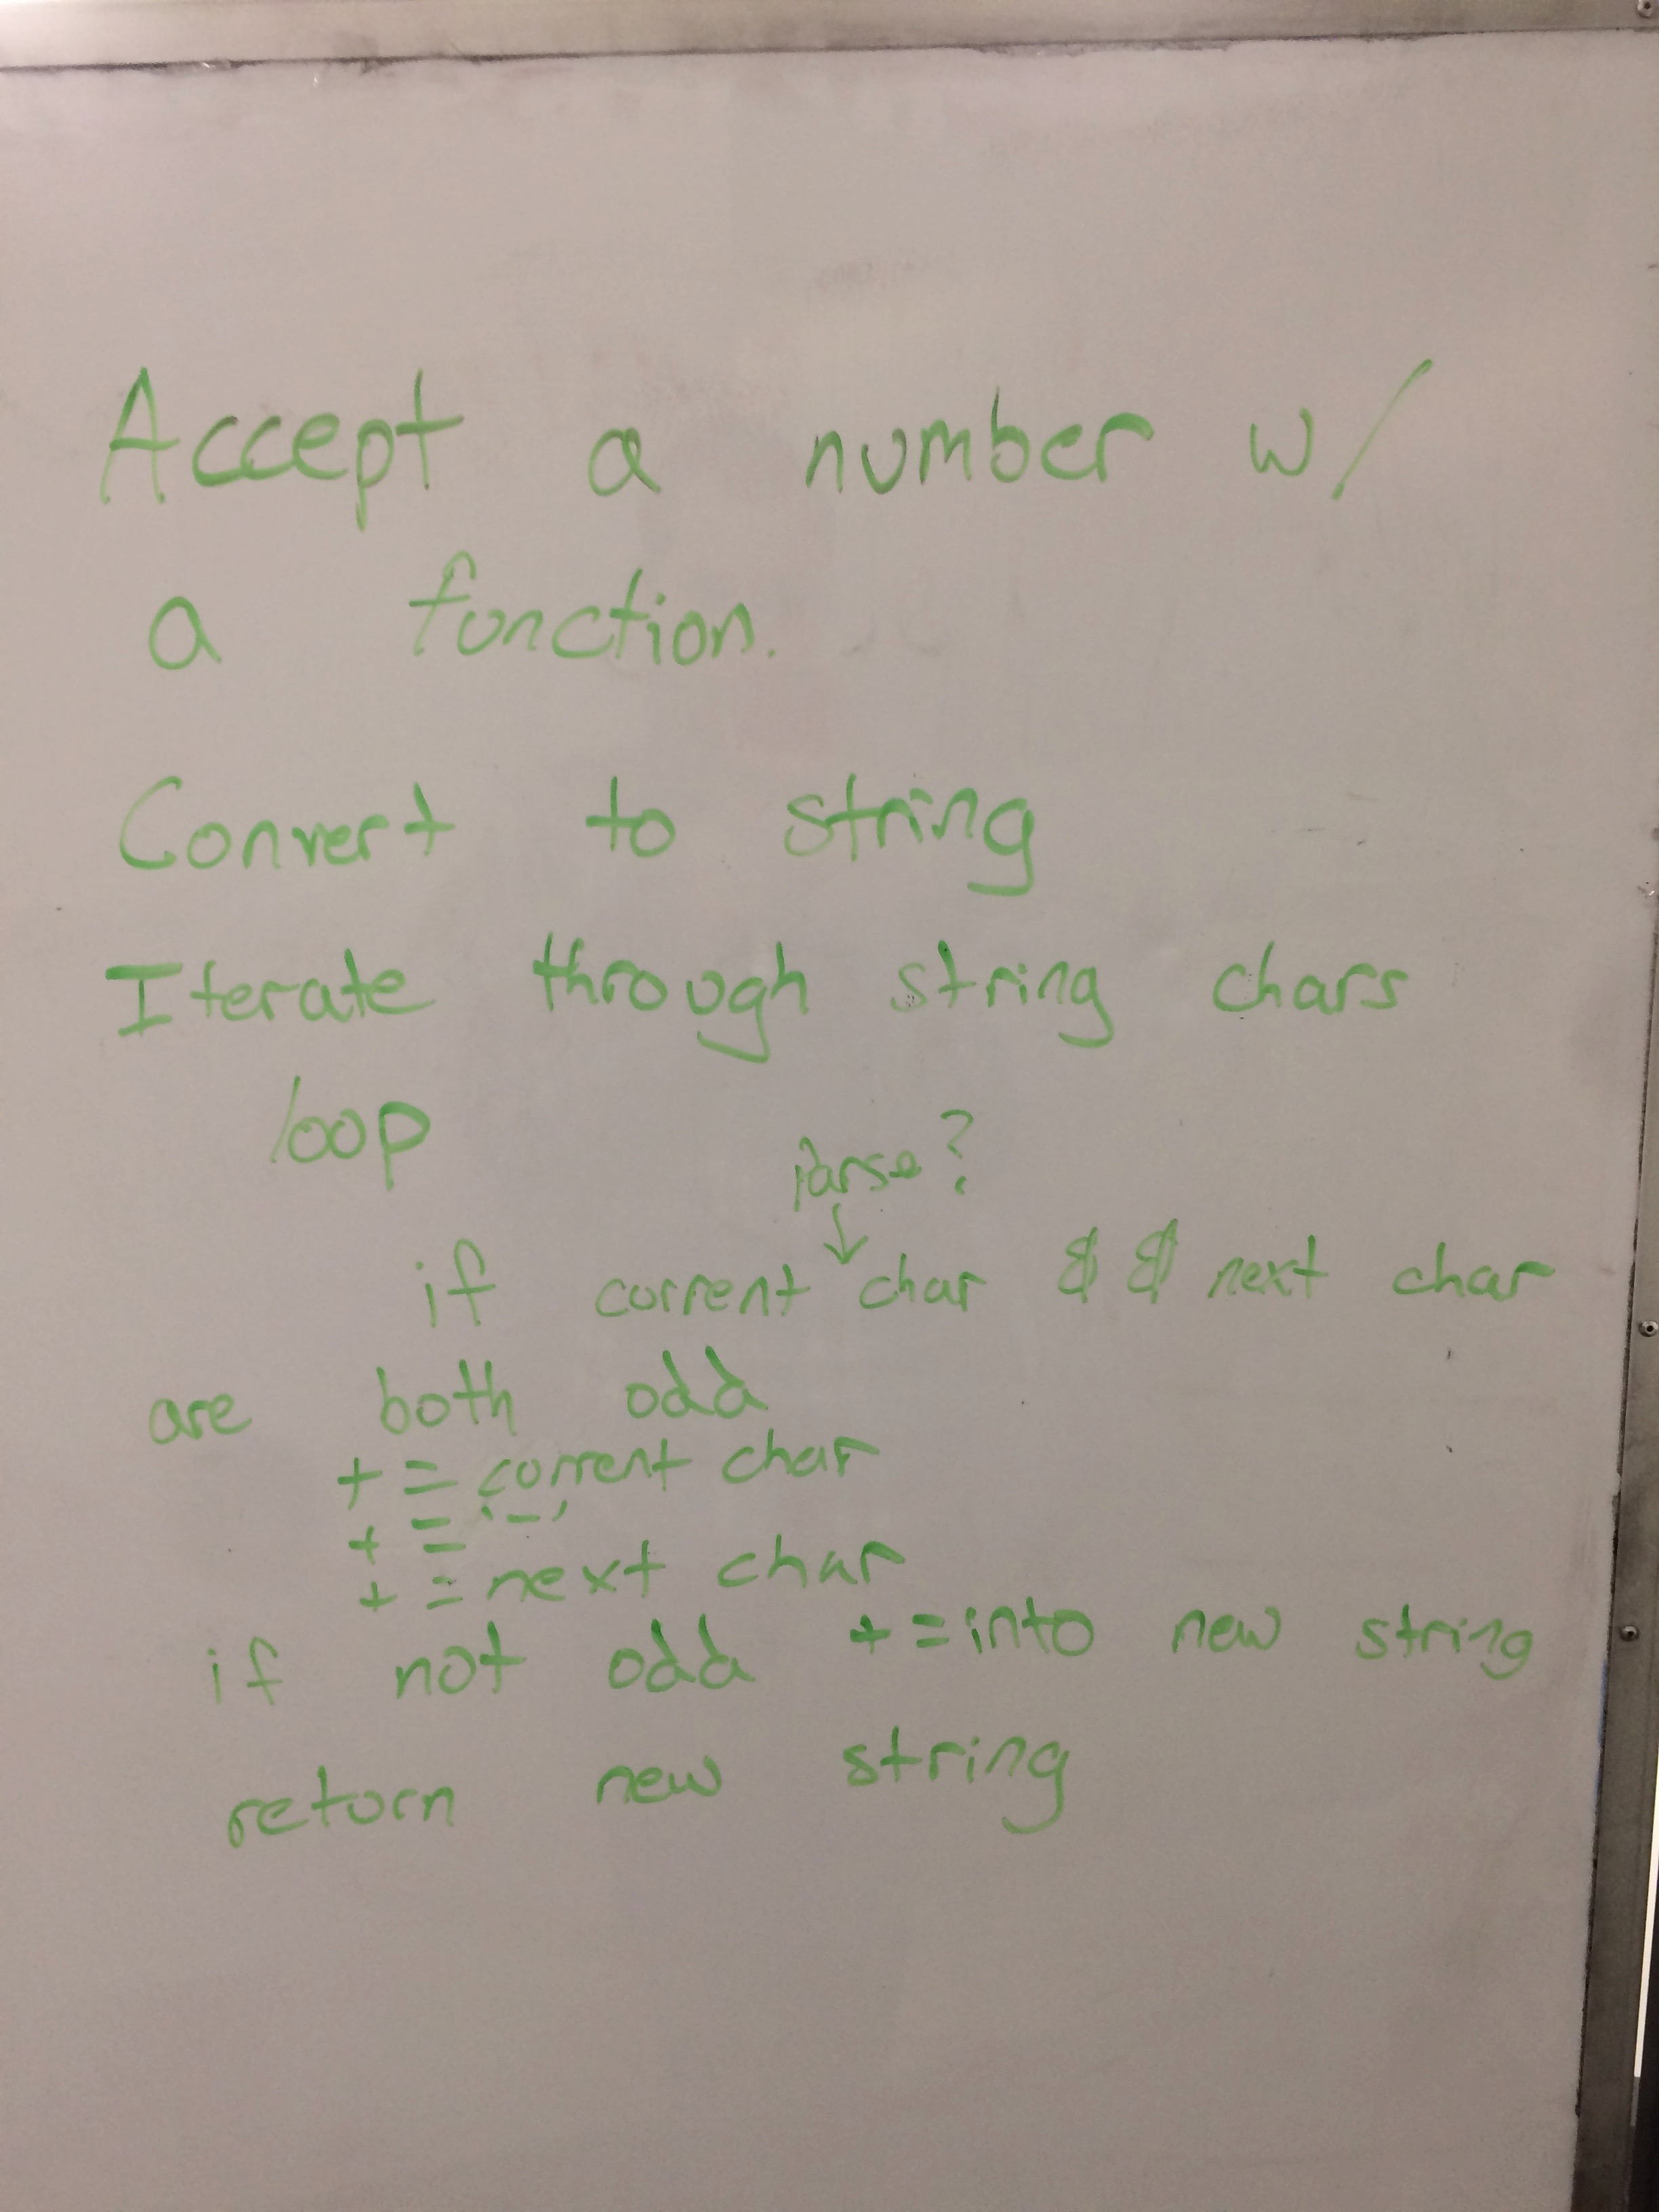 Accept a number w/
a function.
Convert to string
Iterate through string chars
loop
parse?
↓
if current char && next char
are both odd
+= current char
+= '-'
+= next char
if not odd += into new string
return new string